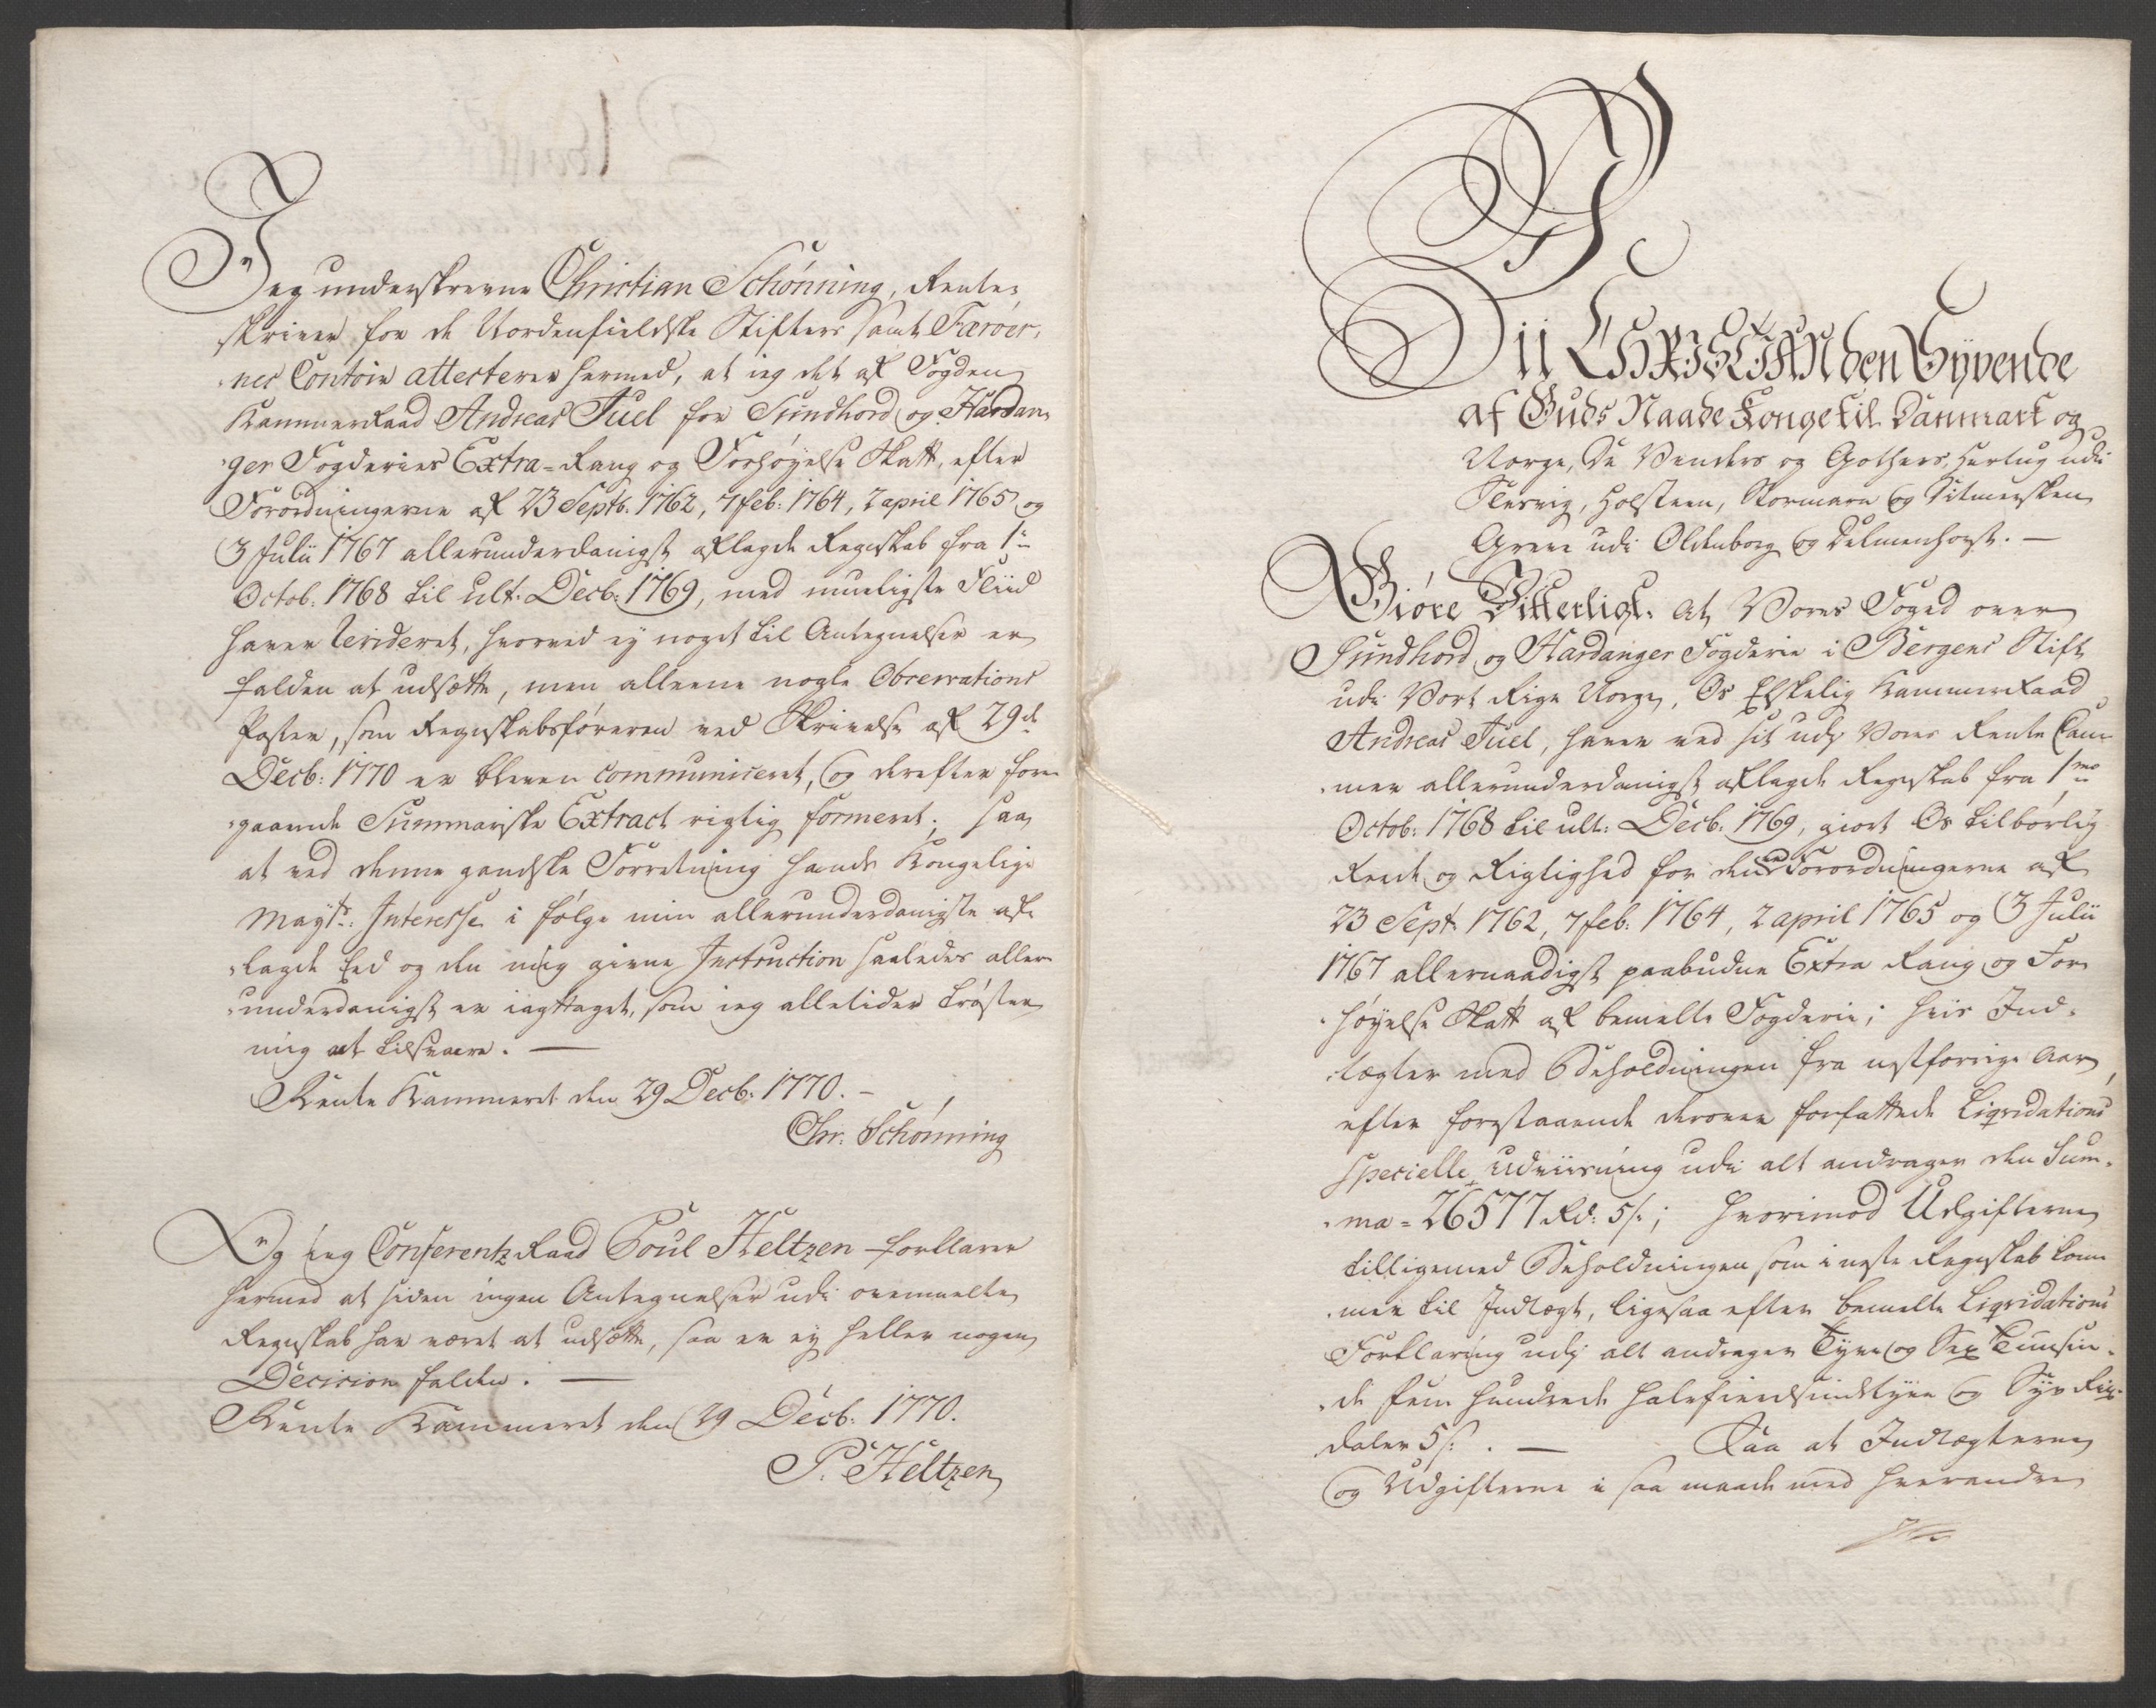 Jeg underskrevne Christian Schönning, Rente-
skriver for de Nordenfieldske Stifters samt Færöer-
nes Contoir attesterer hermed, at ieg det af Fogden
Kammerraad Andreas Juel for Sundhord og Hardan-
ger Fogderies Extra-Rang og Forhöyelse Skatt, efter
Forordningerne af 23 Septb. 1762, 7 feb: 1764, 2 april 1765 og
3 Julii 1767 allerunderdanigst aflagde Regnskab fra 1te
Octob: 1768 til ult: Decb: 1769, med mueligste Fliid
haver Revideret, hvorved ej noget til Antegnelser er
falden at udsætte, men alleene nogle Observations
Poster, som Regnskabsföreren ved Skrivelse af 29de
Decb: 1770 er bleven communiceret, og derefter fore-
gaaende Summariske Extract rigtig formeret; saa
at ved denne gandske Forretning hands Kongelige
Mayts: Interesse i fölge min allerunderdanigste af-
lagde Eed og den mig givne Instruction saaledes aller-
underdanigst er iagttaget, som ieg alletider tröster
mig at tilsvare. —
Rente Kammeret den 29 Decb: 1770. -
Chr: Schönning
Og ieg Conferentz Raad Poul Heltzen forklarer
hermed at siden ingen Antegnelser udi ovenmeldte
Regnskab har været at udsætte, saa er ej heller nogen
Decision falden. —
Rente Kammeret den 29 Decb: 1770.
P. Heltzen
Vii CHRISTIAN den Syvende
af Guds Naade Konge til Danmark og
Norge, De Venders og Gothers, Hertug udi
Slesvig, Holsteen, Stormarn og Ditmersken
Greve udi Oldenborg og Delmenhorst. —
Giöre Vitterligt: At Vores Foged over
Sundhord og Hardanger Fogderie i Bergens Stift
udi Vort Rige Norge, Os Elskelig Kammerraad
Andreas Juel, haver ved sit udj Vores Rente Cam-
mer allerunderdanigst aflagde Regnskab fra 1mo
Octob: 1768 til ult: Decb: 1769, giort Os tilbörlig
Reede og Rigtighed for den ved Forordningerne af
23 Sept 1762, 7 feb: 1764, 2 april 1765 og 3 Julii
1767 allernaadigst paabudne Extra Rang og For-
höyelse Skatt af bemelte Fogderie; hvis Ind-
tægter med Beholdningen fra nestforrige Aar,
efter forestaaende derover forfattede Liqvidations
specielle udviisning udi alt andrager den Sum-
ma = 26577 Rd: 5 s; hvorimod Udgifterne
tilligemed Beholdningen som i neste Regnskab kom-
mer til Indtægt, ligesaa efter bemelte Liqvidations
Forklaring udj alt andrager Tyve og Sex Tusin-
de fem hundrede halvfierdsindstyve og Syv Rix-
daler 5 s: . — Saa at Indtægterne
og Udgifterne i saa maade med hverandre